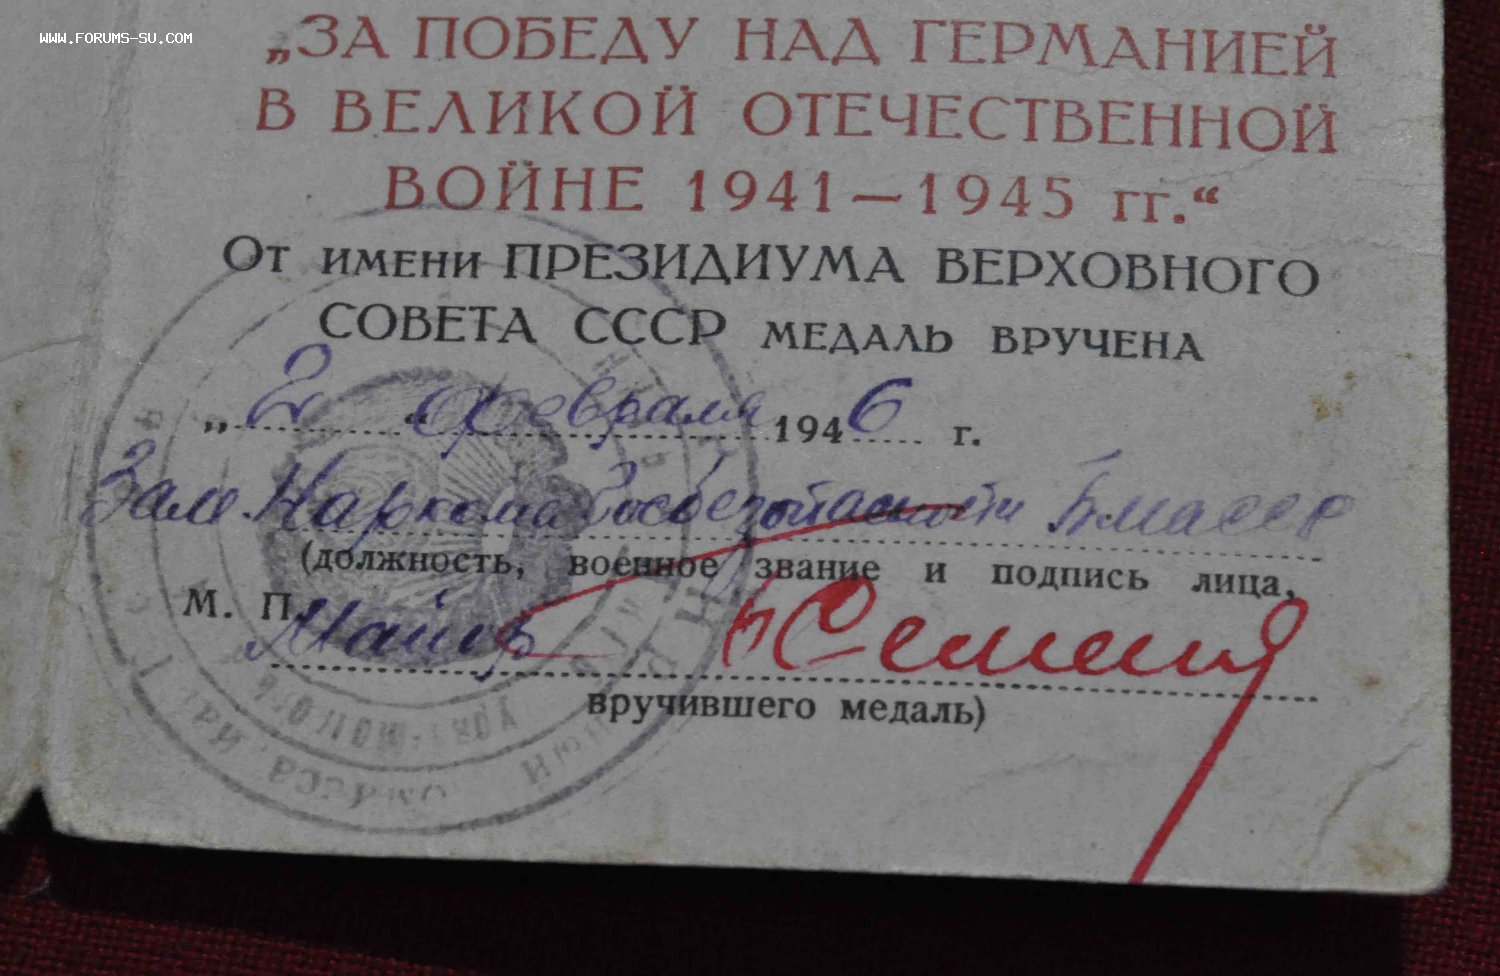 WWW.FORUMS-SU.COM
„ЗА ПОБЕДУ НАД ГЕРМАНИЕЙ
В ВЕЛИКОЙ ОТЕЧЕСТВЕННОЙ
ВОЙНЕ 1941—1945 гг.“
От имени ПРЕЗИДИУМА ВЕРХОВНОГО
СОВЕТА СССР МЕДАЛЬ ВРУЧЕНА
„2“ февраля 1946 г.
Зам. Наркома Госбезопасности БМАССР
(должность, военное звание и подпись лица,
М. П. Майор
вручившего медаль)